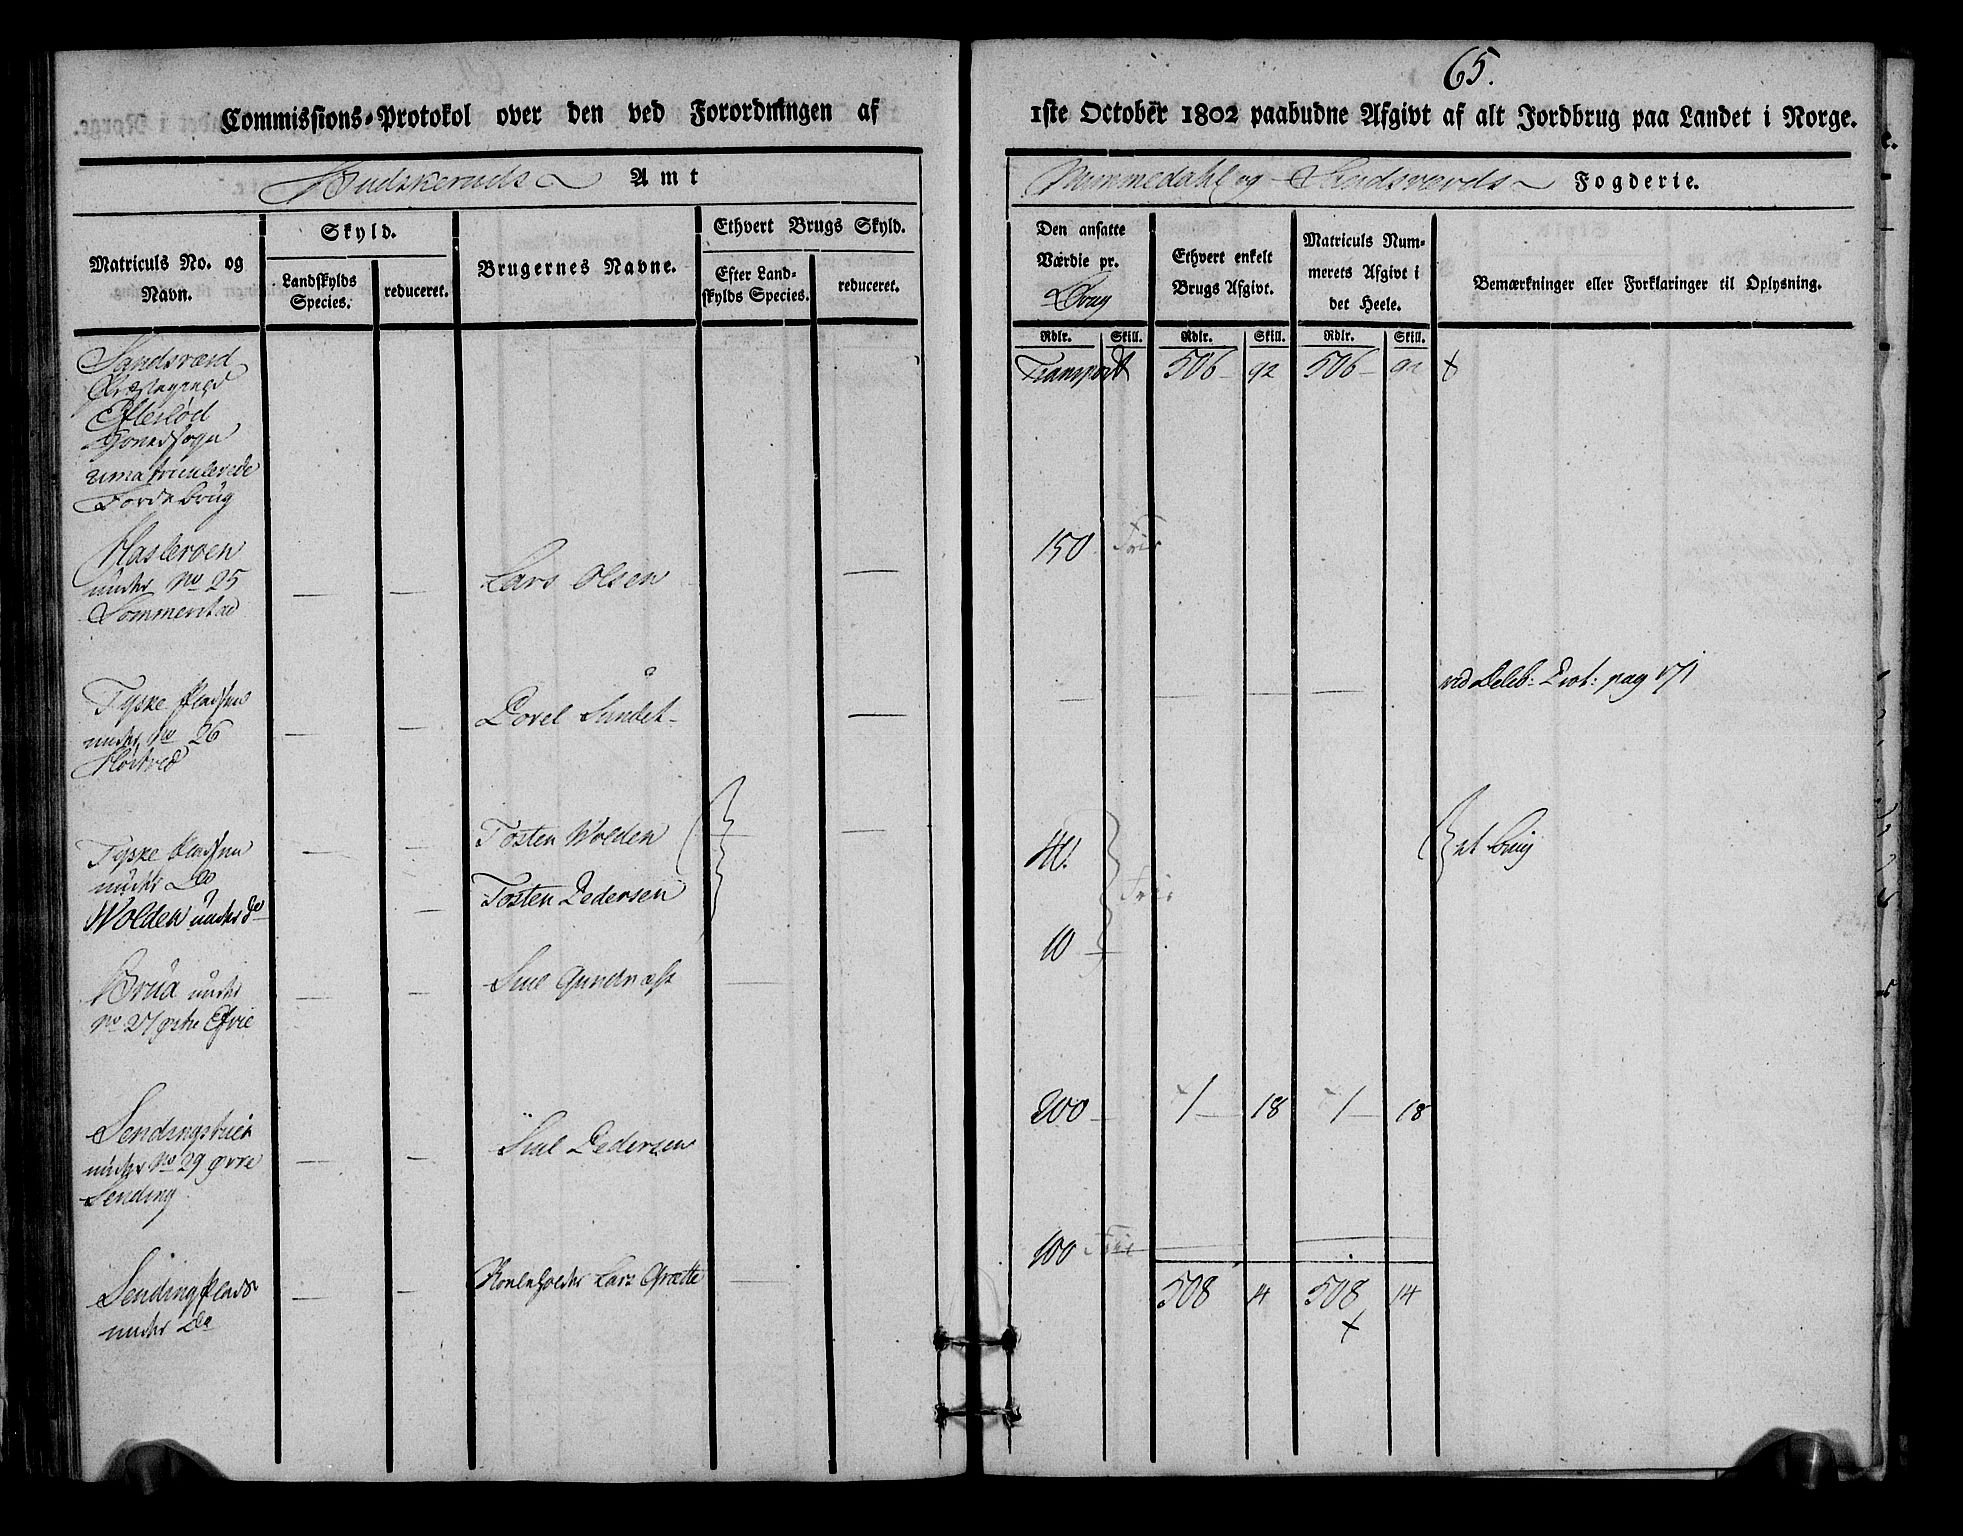 65.
Commissions-Protokol over den ved Forordningen af
1ste October 1802 paabudne Afgivt af alt Jordbrug paa Landet i Norge.
Budskeruds Amt
Nummedahl og Sandsværds Fogderie.
Matriculs No. og
Navn.
Skyld.
Landskylds
Species.
reduceret.
Brugernes Navne.
Ethvert Brugs Skyld.
Efter Land-
skylds Species.
reduceret.
Den ansatte
Værdie pr.
Brug
Ethvert enkelt
Brugs Afgivt.
Matriculs Num-
merets Afgivt i
det Heele.
Bemærkninger eller Forklaringer til Oplysning.
Rdlr. Skill. Rdlr. Skill. Rdlr. Skill.
Sandsværd
Præstegield
Eftelød
Sogn
umatriculerede
Jordebrug
Transport 506 92 506 92
Hasleroen
under No 25
Sommerstad
Lars Olsen
150 Frie
Tyske Pladsen
under No 26
Hostved
Dorel Sundet
ved Deleb: Prot: pag 171
Tyske Pladsen
under Do
Tosten Wolden
40.
et Brug
Wolden under Do
Tosten Pedersen
Frie
Brua under
No 27 Efvie
10
Sendingstuen
under No 29 øvre
Sending
Pedersen
200 1 18 1 18
Sending Plads
under Do
Lars Grætte
100 Frie
508 14 508 14